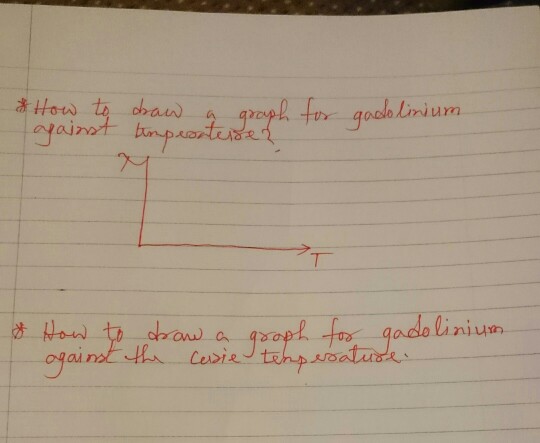 * How to draw a graph for gadolinium
against temperature?
χ
T
* How to draw a graph for gadolinium
against the curie temperature.